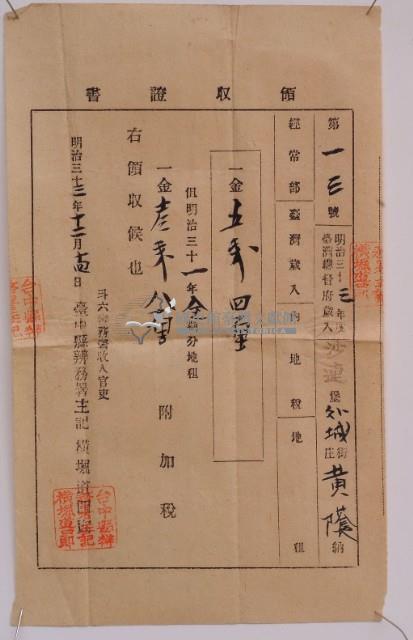 領收證書
第一三號
明治三十三年度
臺灣總督府歲入
沙連堡外城街庄黃󠄁納
經常部臺灣歲入內地稅地租
一金五錢四厘
但明治三十一年全期分地租
一金壱錢八厘附加稅
右領收候也
斗六辨務署收入官吏
明治三十三年十二月十四日臺中縣辨務署主記橫堀
台中縣辨
務署主記
橫堀